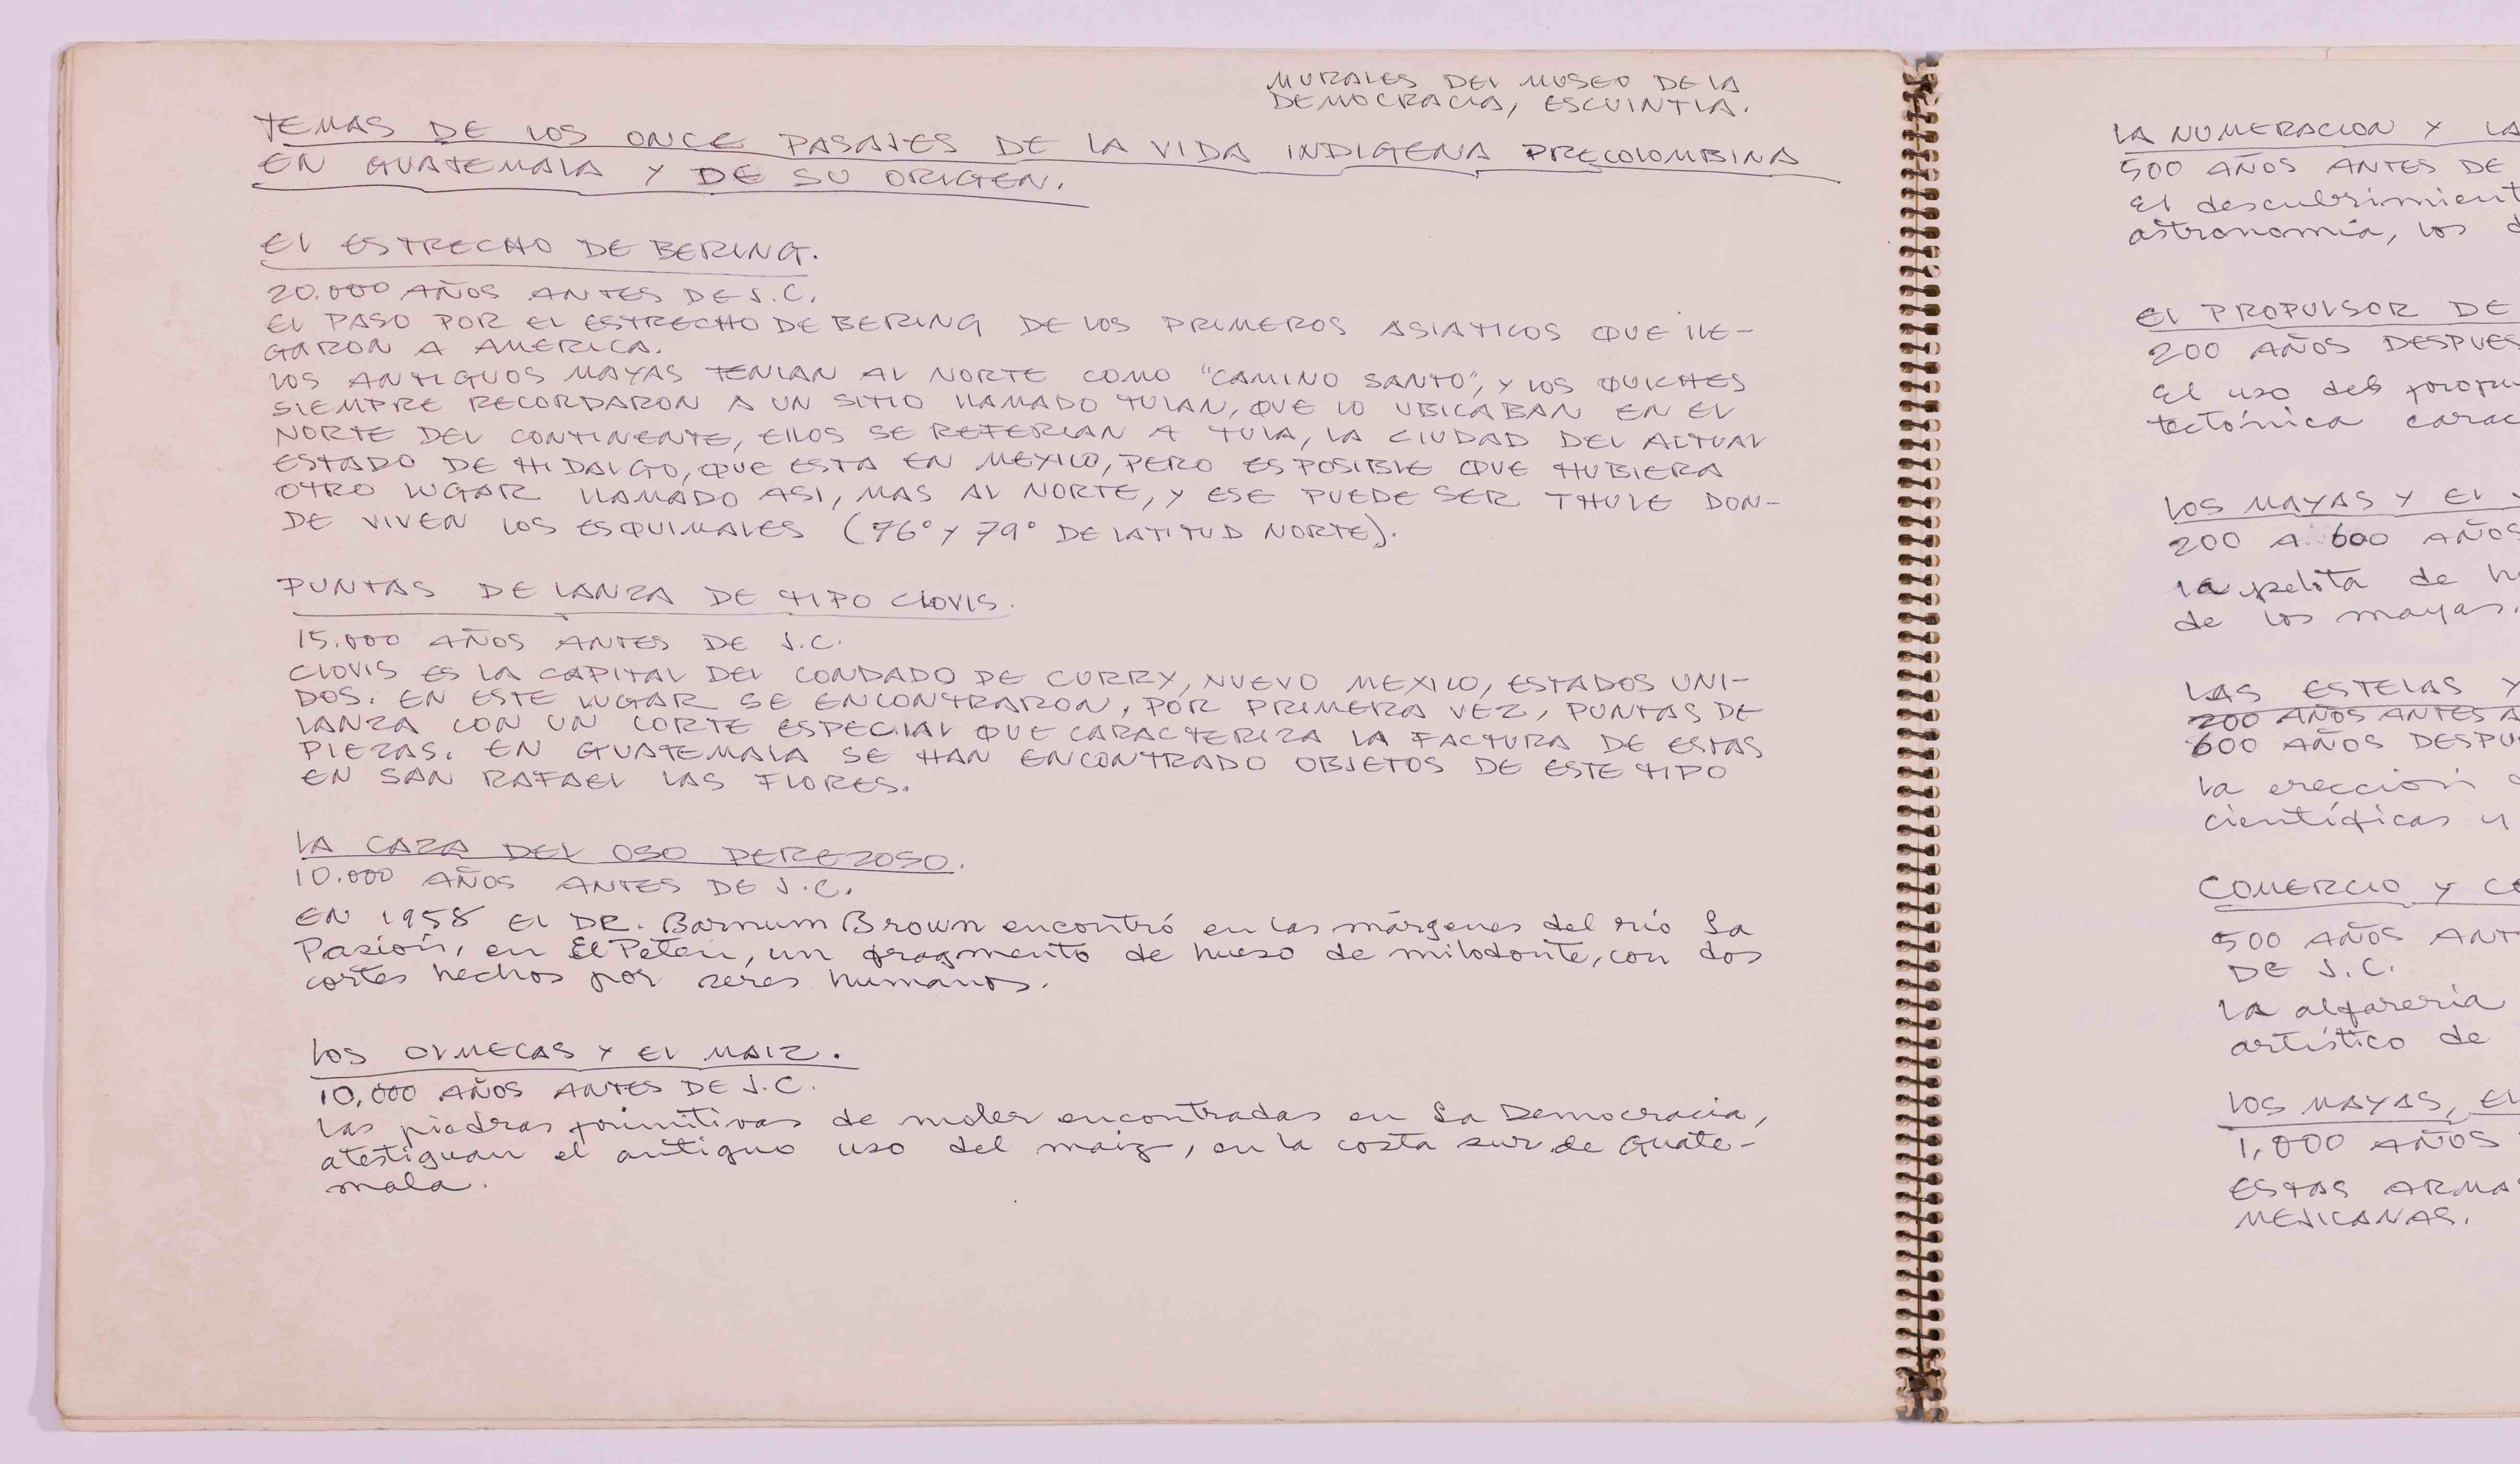 MURALES DEL MUSEO DE LA
DEMOCRACIA, ESCUINTLA.
TEMAS DE LOS ONCE PASAJES DE LA VIDA INDIGENA PRECOLOMBINA
EN GUATEMALA Y DE SU ORIGEN.
EL ESTRECHO DE BERING.
20.000 AÑOS ANTES DE J.C.
EL PASO POR EL ESTRECHO DE BERING DE LOS PRIMEROS ASIATICOS QUE LLE-
GARON A AMERICA.
LOS ANTIGUOS MAYAS TENIAN AL NORTE COMO "CAMINO SANTO", Y LOS QUICHES
SIEMPRE RECORDARON A UN SITIO LLAMADO TULAN, QUE LO UBICABAN EN EL
NORTE DEL CONTINENTE, ELLOS SE REFERIAN A TULA, LA CIUDAD DEL ACTUAL
ESTADO DE HIDALGO, QUE ESTA EN MEXICO, PERO ES POSIBLE QUE HUBIERA
OTRO LUGAR LLAMADO ASI, MAS AL NORTE, Y ESE PUEDE SER THULE DON-
DE VIVEN LOS ESQUIMALES (76° Y 79° DE LATITUD NORTE).
PUNTAS DE LANZA DE TIPO CLOVIS.
15.000 AÑOS ANTES DE J.C.
CLOVIS ES LA CAPITAL DEL CONDADO DE CURRY, NUEVO MEXICO, ESTADOS UNI-
DOS. EN ESTE LUGAR SE ENCONTRARON, POR PRIMERA VEZ, PUNTAS DE
LANZA CON UN CORTE ESPECIAL QUE CARACTERIZA LA FACTURA DE ESTAS
PIEZAS. EN GUATEMALA SE HAN ENCONTRADO OBJETOS DE ESTE TIPO
EN SAN RAFAEL LAS FLORES.
LA CAZA DEL OSO PEREZOSO.
10.000 AÑOS ANTES DE J.C.
EN 1958 EL DR. Barnum Brown encontró en las márgenes del río La
Pasión, en El Petén, un fragmento de hueso de milodonte, con dos
cortes hechos por seres humanos.
LOS OLMECAS Y EL MAIZ.
10,000 AÑOS ANTES DE J.C.
Las piedras primitivas de moler encontradas en La Democracia,
atestiguan el antiguo uso del maiz, en la costa sur de Guate-
mala.
LA NUMERACION Y LA
500 AÑOS ANTES DE
El descubrimient
astronomía, los
EL PROPULSOR DE
200 AÑOS DESPUES
El uso del propu
tectónica carac
LOS MAYAS Y EL
200 A 600 AÑOS
la pelota de
de los mayas.
LAS ESTELAS Y
200 AÑOS ANTES A
600 AÑOS DESPU
La erección
científicas y
COMERCIO Y CE
500 AÑOS ANT
DE J.C.
La alfarería
artístico de
LOS MAYAS, EL
1,000 AÑOS
ESTAS ARMA
MEJICANAS.